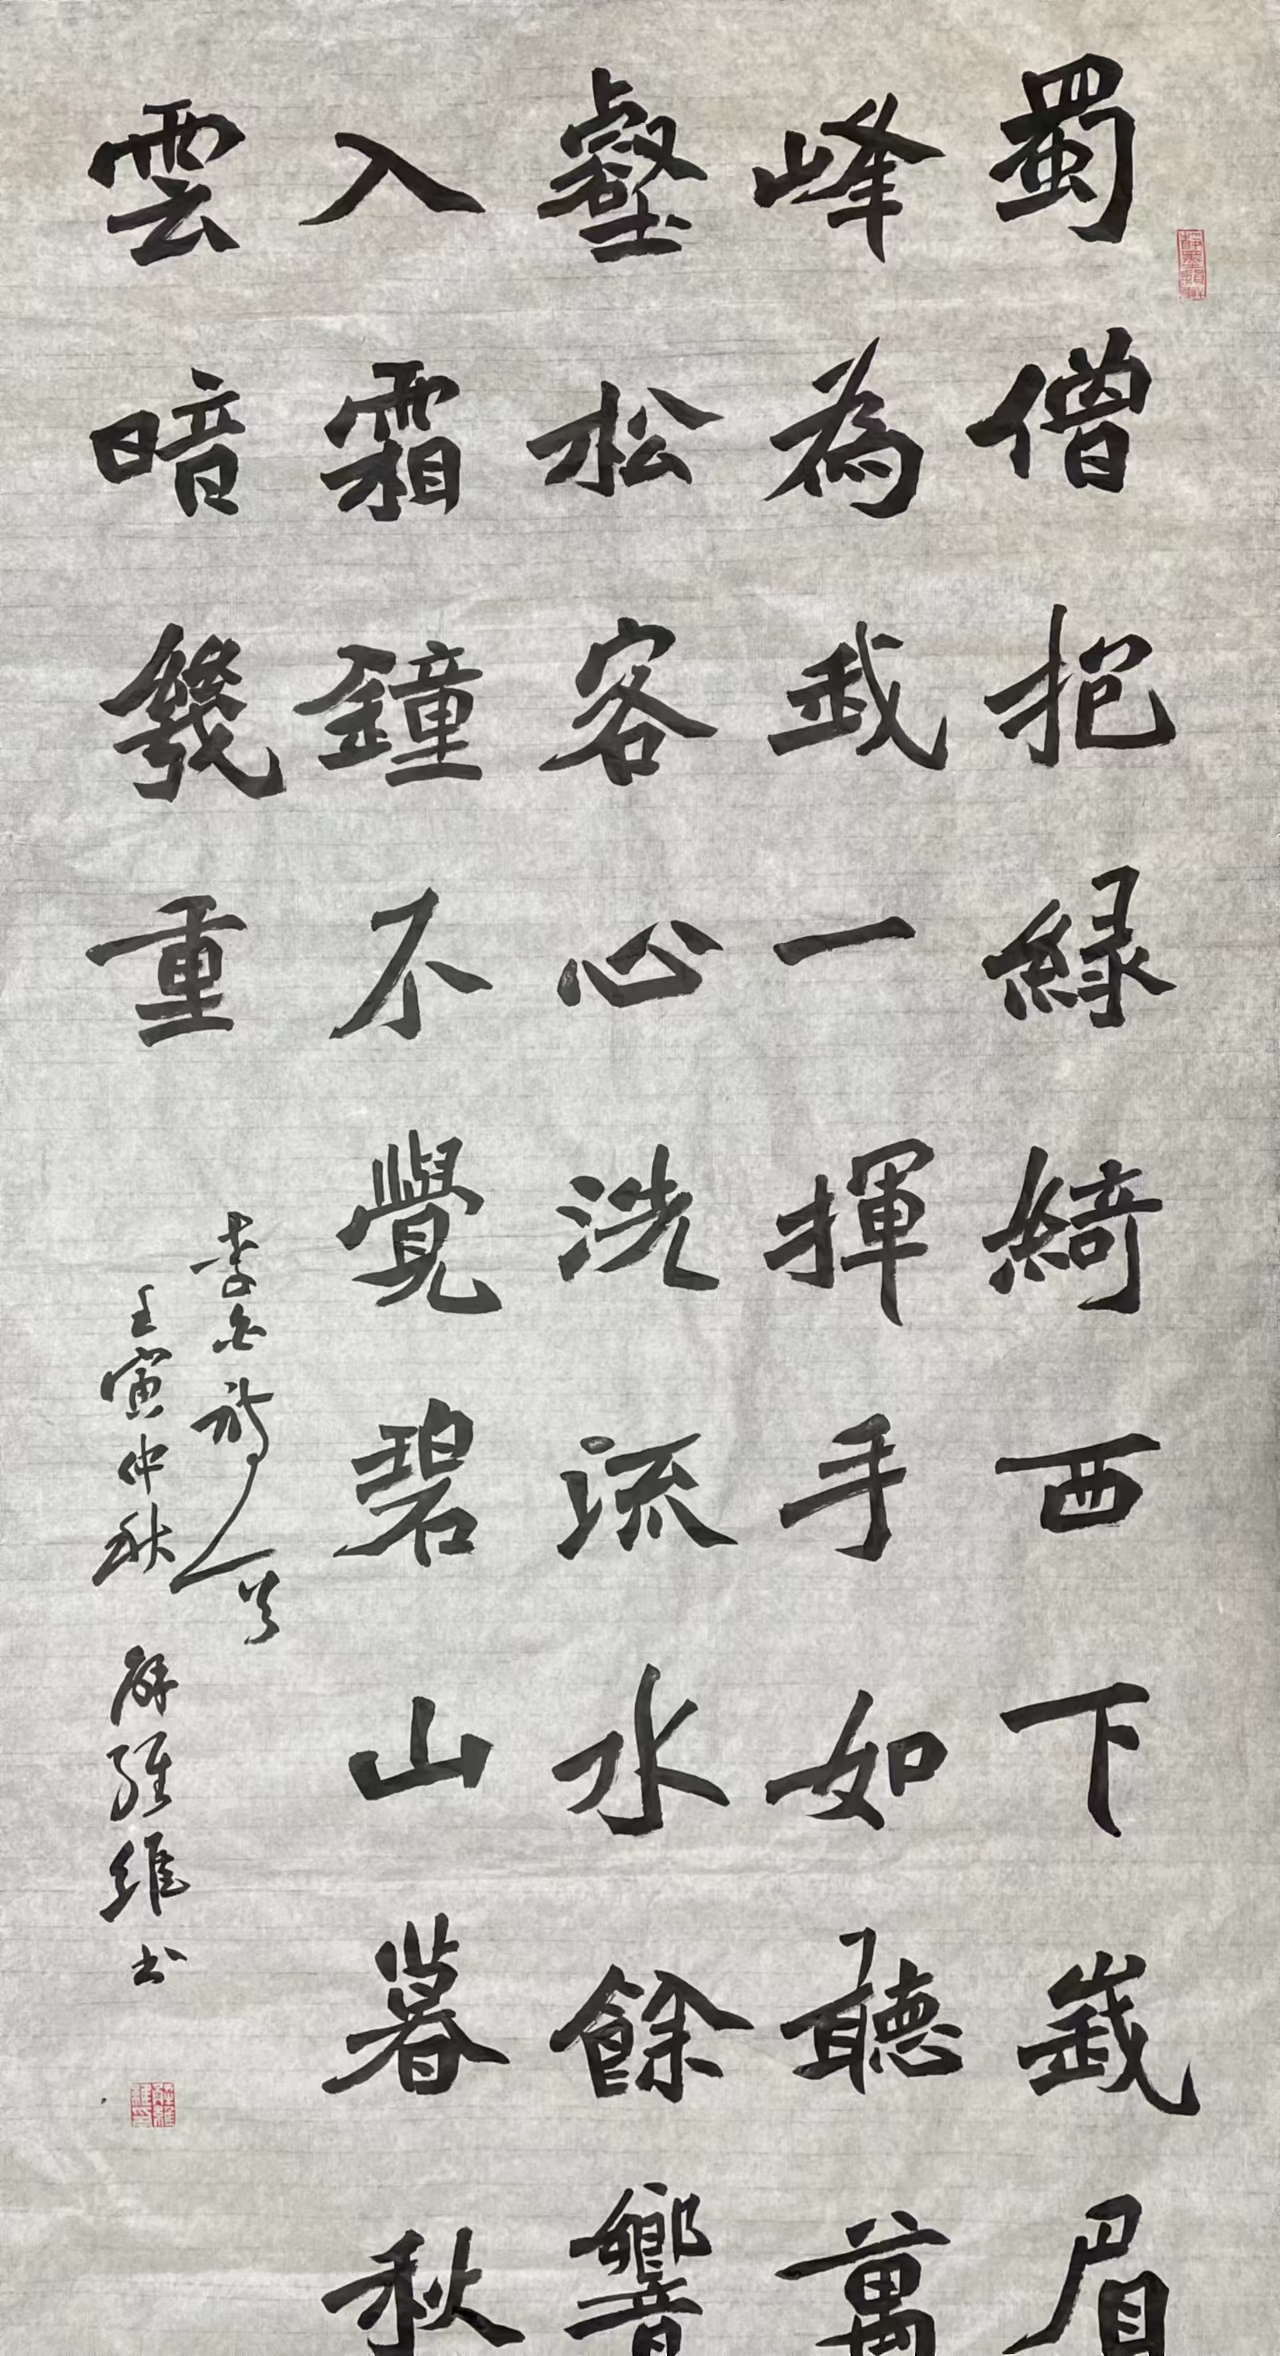 蜀僧抱緑綺西下峩眉
峰為我一揮手如聽萬
壑松客心洗流水餘響
入霜鐘不覺碧山暮秋
雲暗幾重
李白詩一首
壬寅仲秋
維書